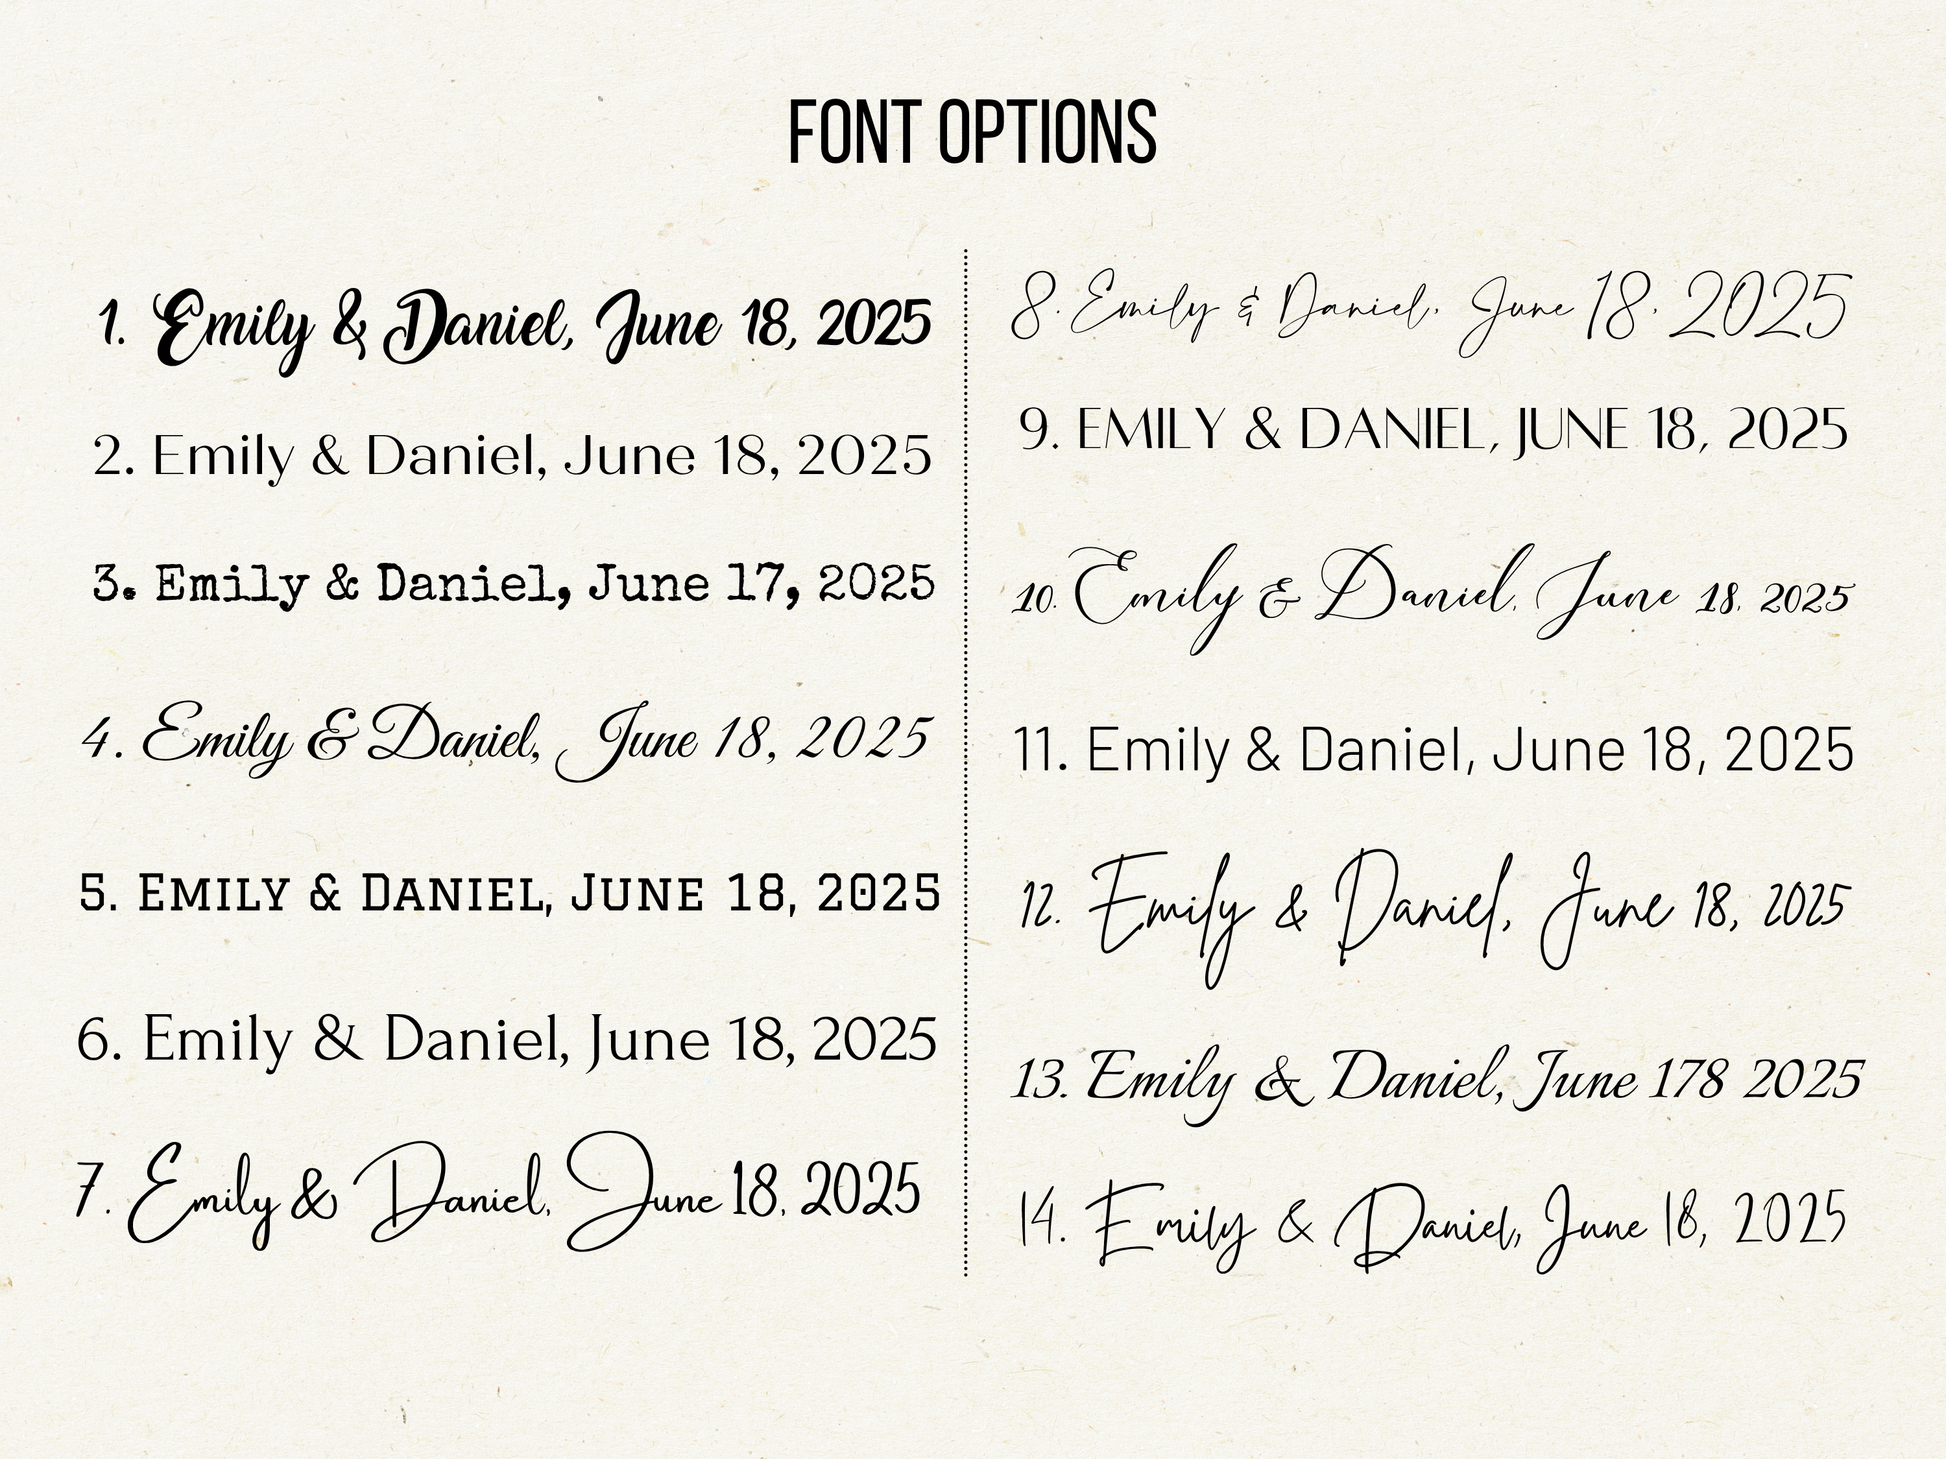 FONT OPTIONS
1. Emily & Daniel, June 18, 2025
2. Emily & Daniel, June 18, 2025
3. Emily & Daniel, June 17, 2025
4. Emily & Daniel, June 18, 2025
5. EMILY & DANIEL, JUNE 18, 2025
6. Emily & Daniel, June 18, 2025
7. Emily & Daniel. June 18. 2025
8. Emily & Daniel. June 18. 2025
9. EMILY & DANIEL, JUNE 18, 2025
10. Emily & Daniel. June 18. 2025
11. Emily & Daniel, June 18, 2025
12. Emily & Daniel, June 18, 2025
13. Emily & Daniel, June 178 2025
14. Emily & Daniel, June 18, 2025